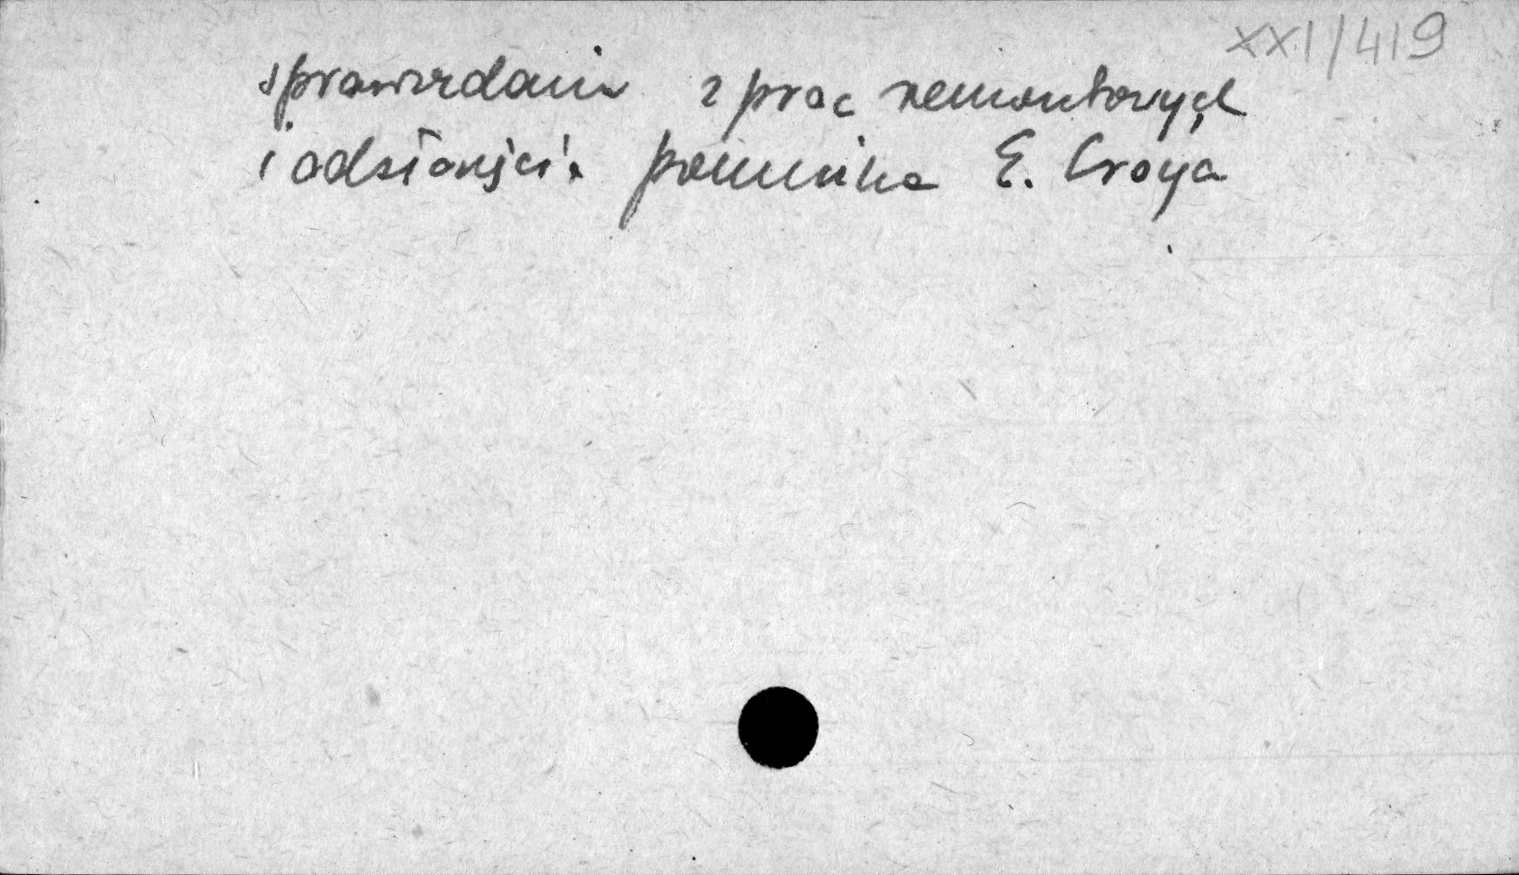 XXI/419
sprawozdanie z prac remontowych
i odsłonięcia pomnika E. Croya